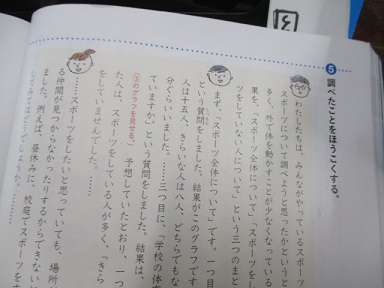 5 調べたことをほうこくする。
わたしたちは、みんながやっているスポーツ
スポーツについて調べようと思ったかというと
多く、外で体を動かすことが少なくなっている
果を、「スポーツ全体について」「スポーツをし
ツをしていない人について」という三つのまと
まず、「スポーツ全体について」です。一つ目
という質問をしました。結果がこのグラフです
人は十五人、きらいな人は八人、どちらでもな
分ぐらいました。……三つ目に、「学校の体
(②のグラフを見せる。)
ていますか」という質問をしました。結果は、
予想していたとおり、一つ
た人は、スポーツをしている人が多く、「きら
をしていませんでした。……
……スポーツをしたいと思っていても、場所
る仲間が見つからなかったりするからできない
ました。例えば、昼休みに、校庭でスポーツを
してみてはどうでしょうか。